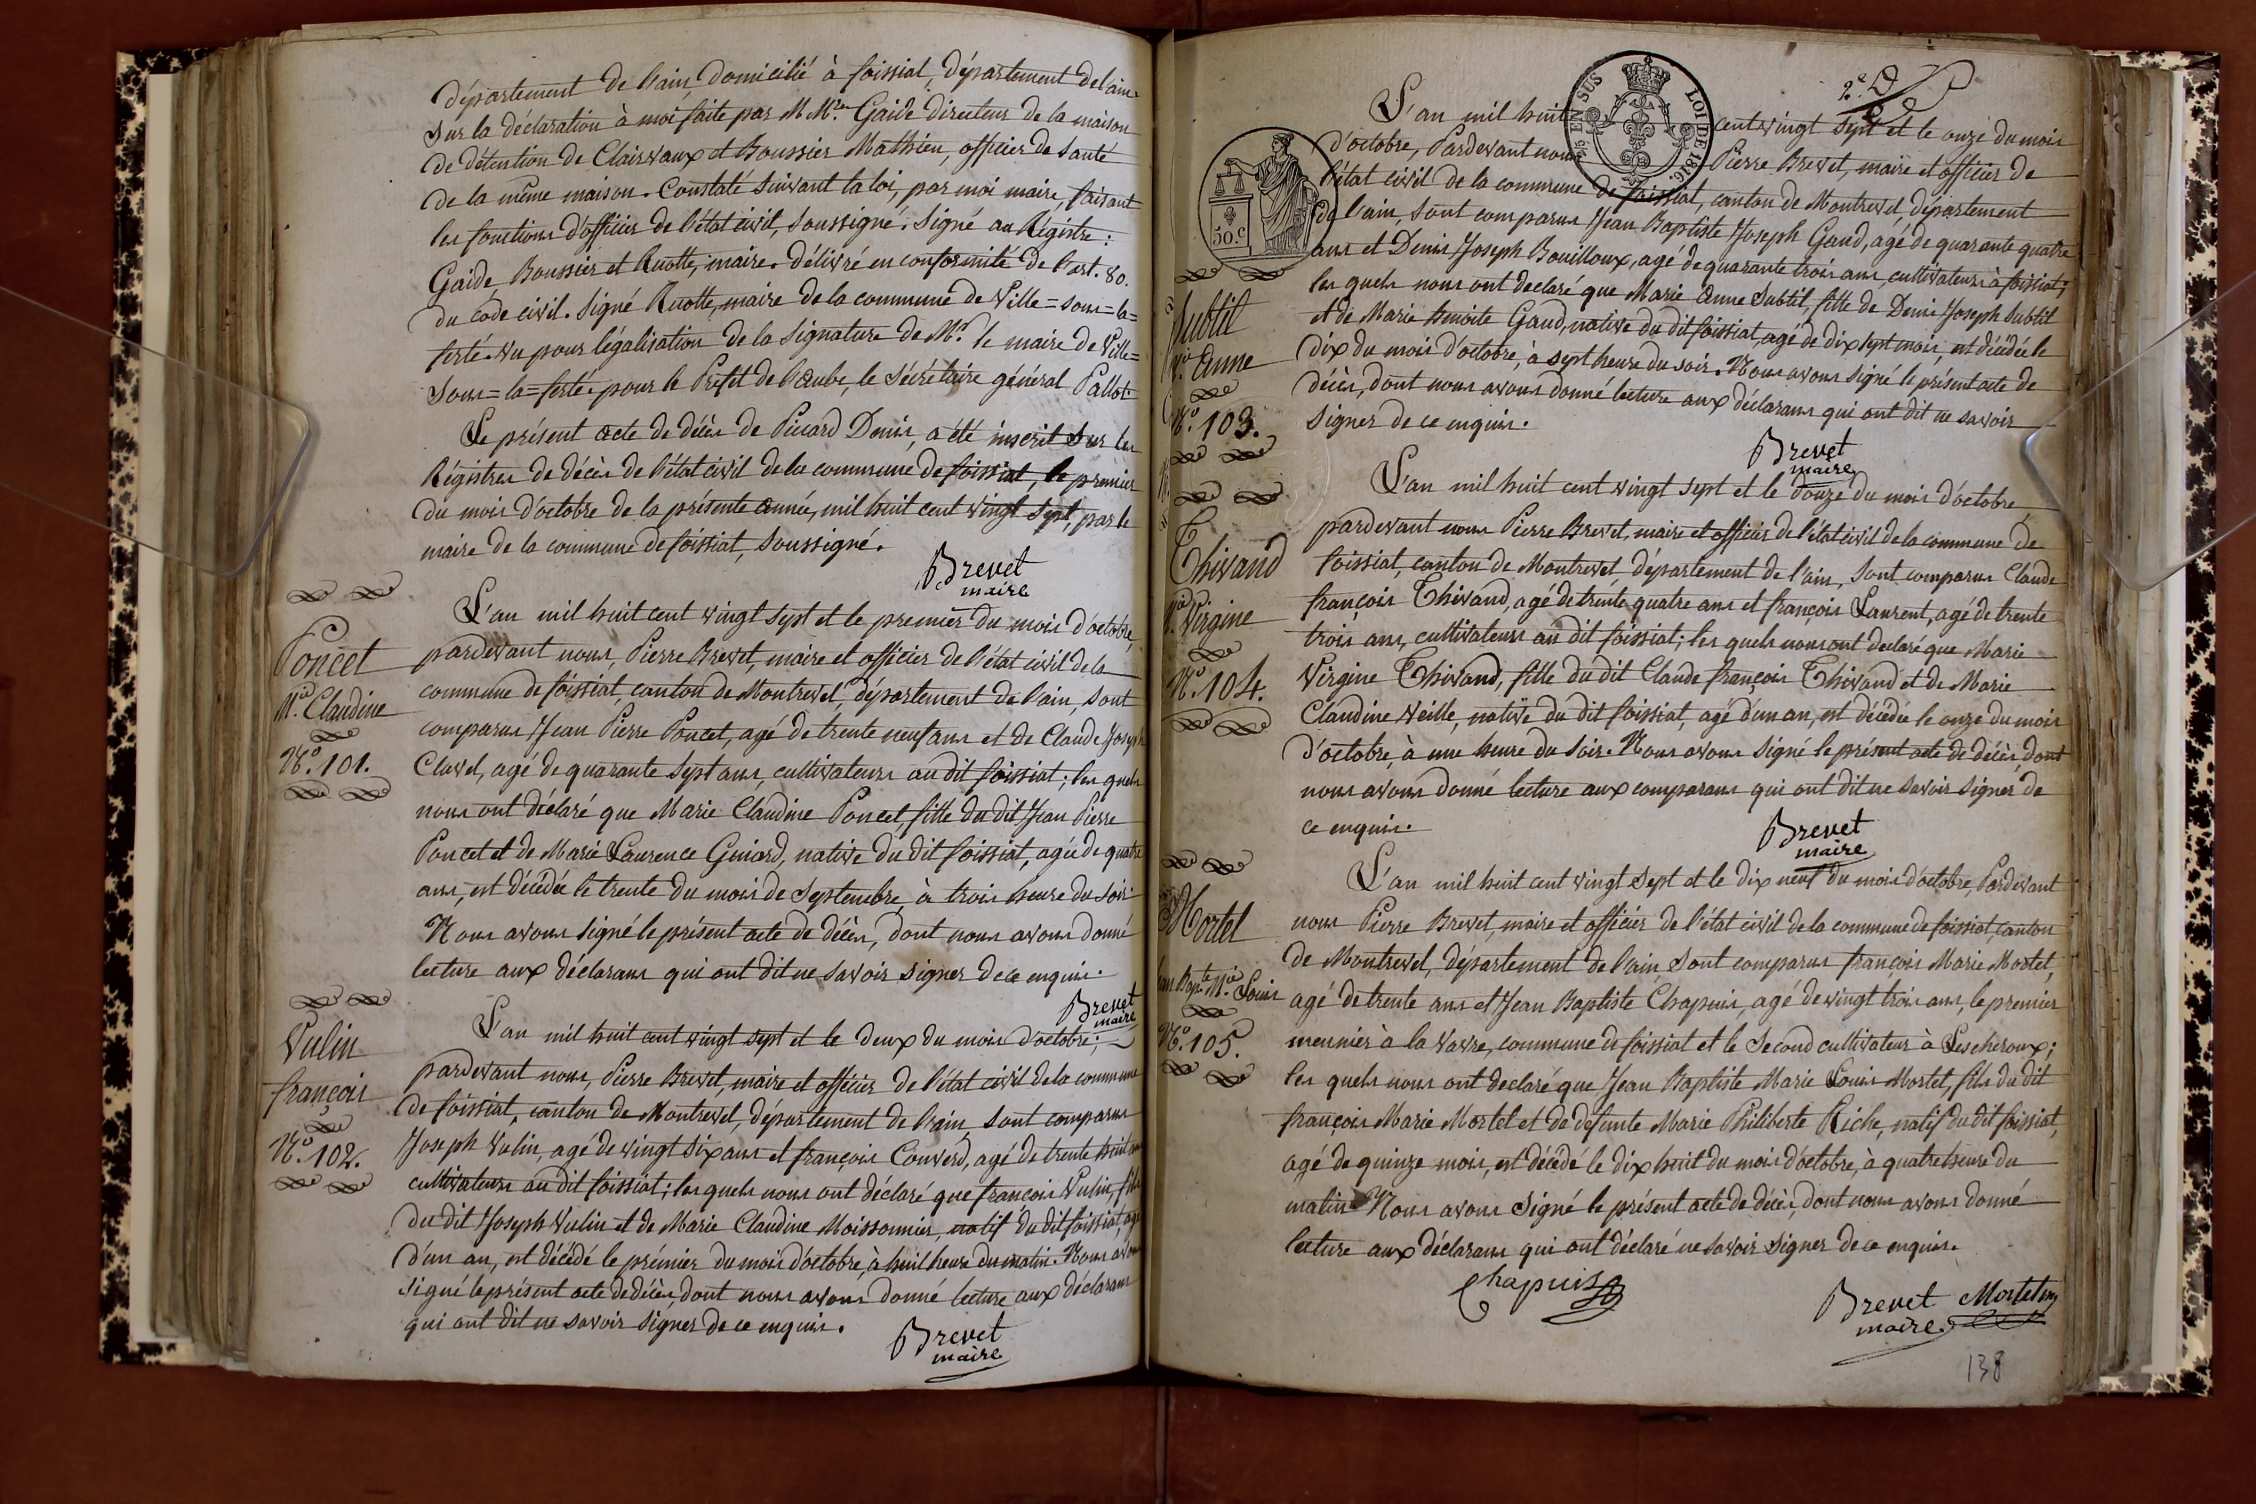 département de l'ain, domicilié à foissiat, département de l'ain.
Sur la déclaration à moi faite par M. Gaide directeur de la maison
de détention de Clairvaux et Boussier Mathieu, officier de Santé
de la même maison. Constaté suivant la loi, par moi maire, faisant
les fonctions d'officier de l'état civil, soussigné. Signé au Régistre:
Gaide, Boussier et Ruotte, maire. délivré en conformité de l'art. 80.
du code civil. Signé Ruotte, maire de la commune de Ville=sous=la=
ferté. Vu pour légalisation de la signature de Mr. le maire de Ville=
sous=la=ferté. pour le Préfet de l'aube, le Sécrétaire général Pallot.
Le présent acte de décès de Picard Denis, a été inscrit sur les
Régistres de décès de l'état civil de la commune de foissiat, le premier
du mois d'octobre de la présente année, mil huit cent vingt sept, par le
maire de la commune de foissiat, soussigné.
Brevet
maire
Poncet
Mie. Claudine
No. 101.
L'an mil huit cent vingt sept et le premier du mois d'octobre,
pardevant nous, Pierre Brevet, maire et officier de l'état civil de la
commune de foissiat, canton de Montrevel, département de l'ain, sont
comparus Jean Pierre Poncet, agé de trente neuf ans et de Claude Joseph
Clavel, agé de quarante sept ans, cultivateurs au dit foissiat; les quels
nous ont déclaré que Marie Claudine Poncet, fille du dit Jean Pierre
Poncet et de Marie Laurence Guiard, native du dit foissiat, agée de quatre
ans, est décédée le trente du mois de Septembre, à trois heure du soir.
Nous avons signé le présent acte de décès, dont nous avons donné
lecture aux déclarans qui ont dit ne savoir signer de ce enquis.
Brevet
maire
Vulin
françois
No. 102.
L'an mil huit cent vingt sept et le deux du mois d'octobre;
pardevant nous, Pierre Brevet, maire et officier de l'état civil de la commune
de foissiat, canton de Montrevel, département de l'ain, sont comparus
Joseph Vulin, agé de vingt six ans et françois Couverd, agé de trente huit ans
cultivateurs au dit foissiat; les quels nous ont déclaré que françois Vulin, fils
du dit Joseph Vulin et de Marie Claudine Moissonnier, natif du dit foissiat, agé
d'un an, est décédé le premier du mois d'octobre, à huit heure du matin. Nous avons
signé le présent acte de décès, dont nous avons donné lecture aux déclarans
qui ont dit ne savoir signer de ce enquis.
Brevet
maire
EN SUS
LOI DE 1816
50.c
2e. D
L'an mil huit cent vingt sept et le onze du mois
d'octobre, Pardevant nous Pierre Brevet, maire et officier de
l'état civil de la commune de foissiat, canton de Montrevel, département
de l'ain, sont comparus Jean Baptiste Joseph Gaud, agé de quarante quatre
ans et Denis Joseph Bouilloux, agé de quarante trois ans, cultivateurs à foissiat;
les quels nous ont declaré que Marie Anne Subtil, fille de Denis Joseph Subtil
et de Marie Benoite Gaud, native du dit foissiat, agé de dix sept mois, est décédée le
dix du mois d'octobre, à sept heure du soir. Nous avons signé le présent acte de
décès, dont nous avons donné lecture aux déclarans qui ont dit ne savoir
signer de ce enquis.
Brevet
maire
Subtil
Mie. Anne
No. 103.
Thivand
Mie. Virgine
No. 104.
L'an mil huit cent vingt sept et le douze du mois d'octobre,
pardevant nous Pierre Brevet, maire et officier de l'état civil de la commune de
foissiat, canton de Montrevel département de l'ain, sont comparus Claude
françois Thivand, agé de trente quatre ans et françois Laurent, agé de trente
trois ans, cultivateurs au dit foissiat; les quels nous ont declaré que Marie
Virgine Thivand, fille du dit Claude françois Thivand et de Marie
Claudine Veille, native du dit foissiat, agé d'un an, est décédée le onze du mois
d'octobre, à une heure du soir. Nous avons signé le présent acte de décès, dont
nous avons donné lecture aux comparans qui ont dit ne savoir signer de
ce enquis.
Brevet
maire
Mortel
Jean Bapte. Mie. Louis
No. 105.
L'an mil huit cent vingt sept et le dix neuf du mois d'octobre, Pardevant
nous Pierre Brevet, maire et officier de l'état civil de la commune de foissiat, canton
de Montrevel, département de l'ain, sont comparus françois Marie Mortel,
agé de trente ans et Jean Baptiste Chapuis, agé de vingt trois ans, le premier
meunier à la Vavre, commune de foissiat et le second cultivateur à Lescheroux;
les quels nous ont declaré que Jean Baptiste Marie Louis Mortel, fils du dit
françois Marie Mortel et de defunte Marie Philiberte Riche, natif du dit foissiat,
agé de quinze mois, est décédé le dix huit du mois d'octobre, à quatre heure du
matin. Nous avons signé le présent acte de décès, dont nous avons donné
lecture aux déclarans qui ont déclaré ne savoir signer de ce enquis.
Chapuis
Brevet Mortel
maire.
138